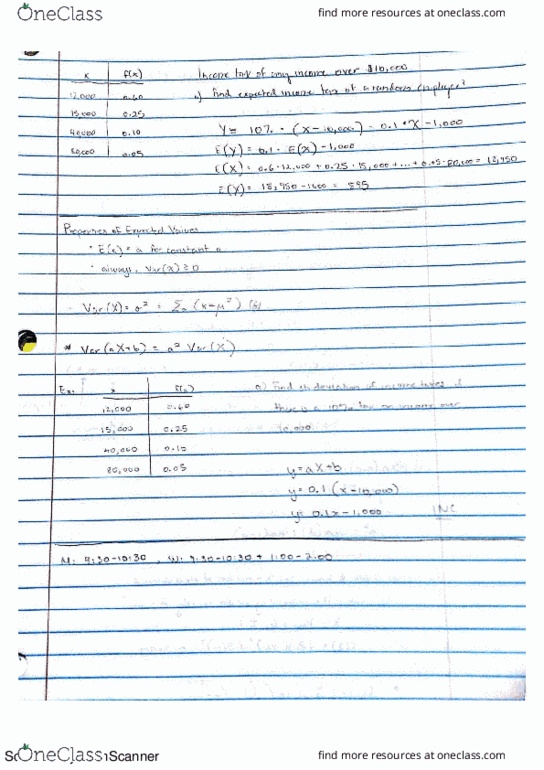 OneClass find more resources at oneclass.com
x f(x) Income tax of any income over $10,000
12,000 0.60 Find expected income tax of a random employee?
15,000 0.25
40,000 0.10 Y = 10% · (X - 10,000) = 0.1 · X - 1,000
80,000 0.05 E(Y) = 0.1 · E(X) - 1,000
E(X) = 0.6 · 12,000 + 0.25 · 15,000 + ... + 0.05 · 80,000 =
Properties of Expected Values
· E(a) = a for constant a
· always, Var(X) ≥ 0
- Var(X) = σ² = Σ (x-μ²)
Var(aX+b) = a² Var(X)
Ex: x a) Find st. deviation of income taxes if
12,000 0.60 there is a 10% tax on income over
15,000 0.25 10,000
40,000 0.10
80,000 0.05 y = aX+b
y = 0.1 (x-10,000)
y = 0.1x - 1,000 INC
M: 9:30-10:30, W: 9:30-10:30 + 1:00-2:00
OneClass Scanner find more resources at oneclass.com